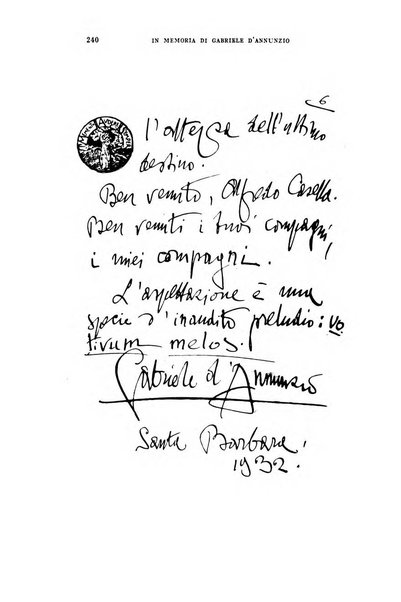 240 IN MEMORIA DI GABRIELE D'ANNUNZIO
6
l'attesa dell'ultimo
destino.
Ben venuto, Alfredo Casella.
Ben venuti i tuoi compagni,
i miei compagni.
L'aspettazione è una
specie d'inaudito preludio: vo
tivum melos.
Gabriele d'Annunzio
Santa Barbara,
1932.